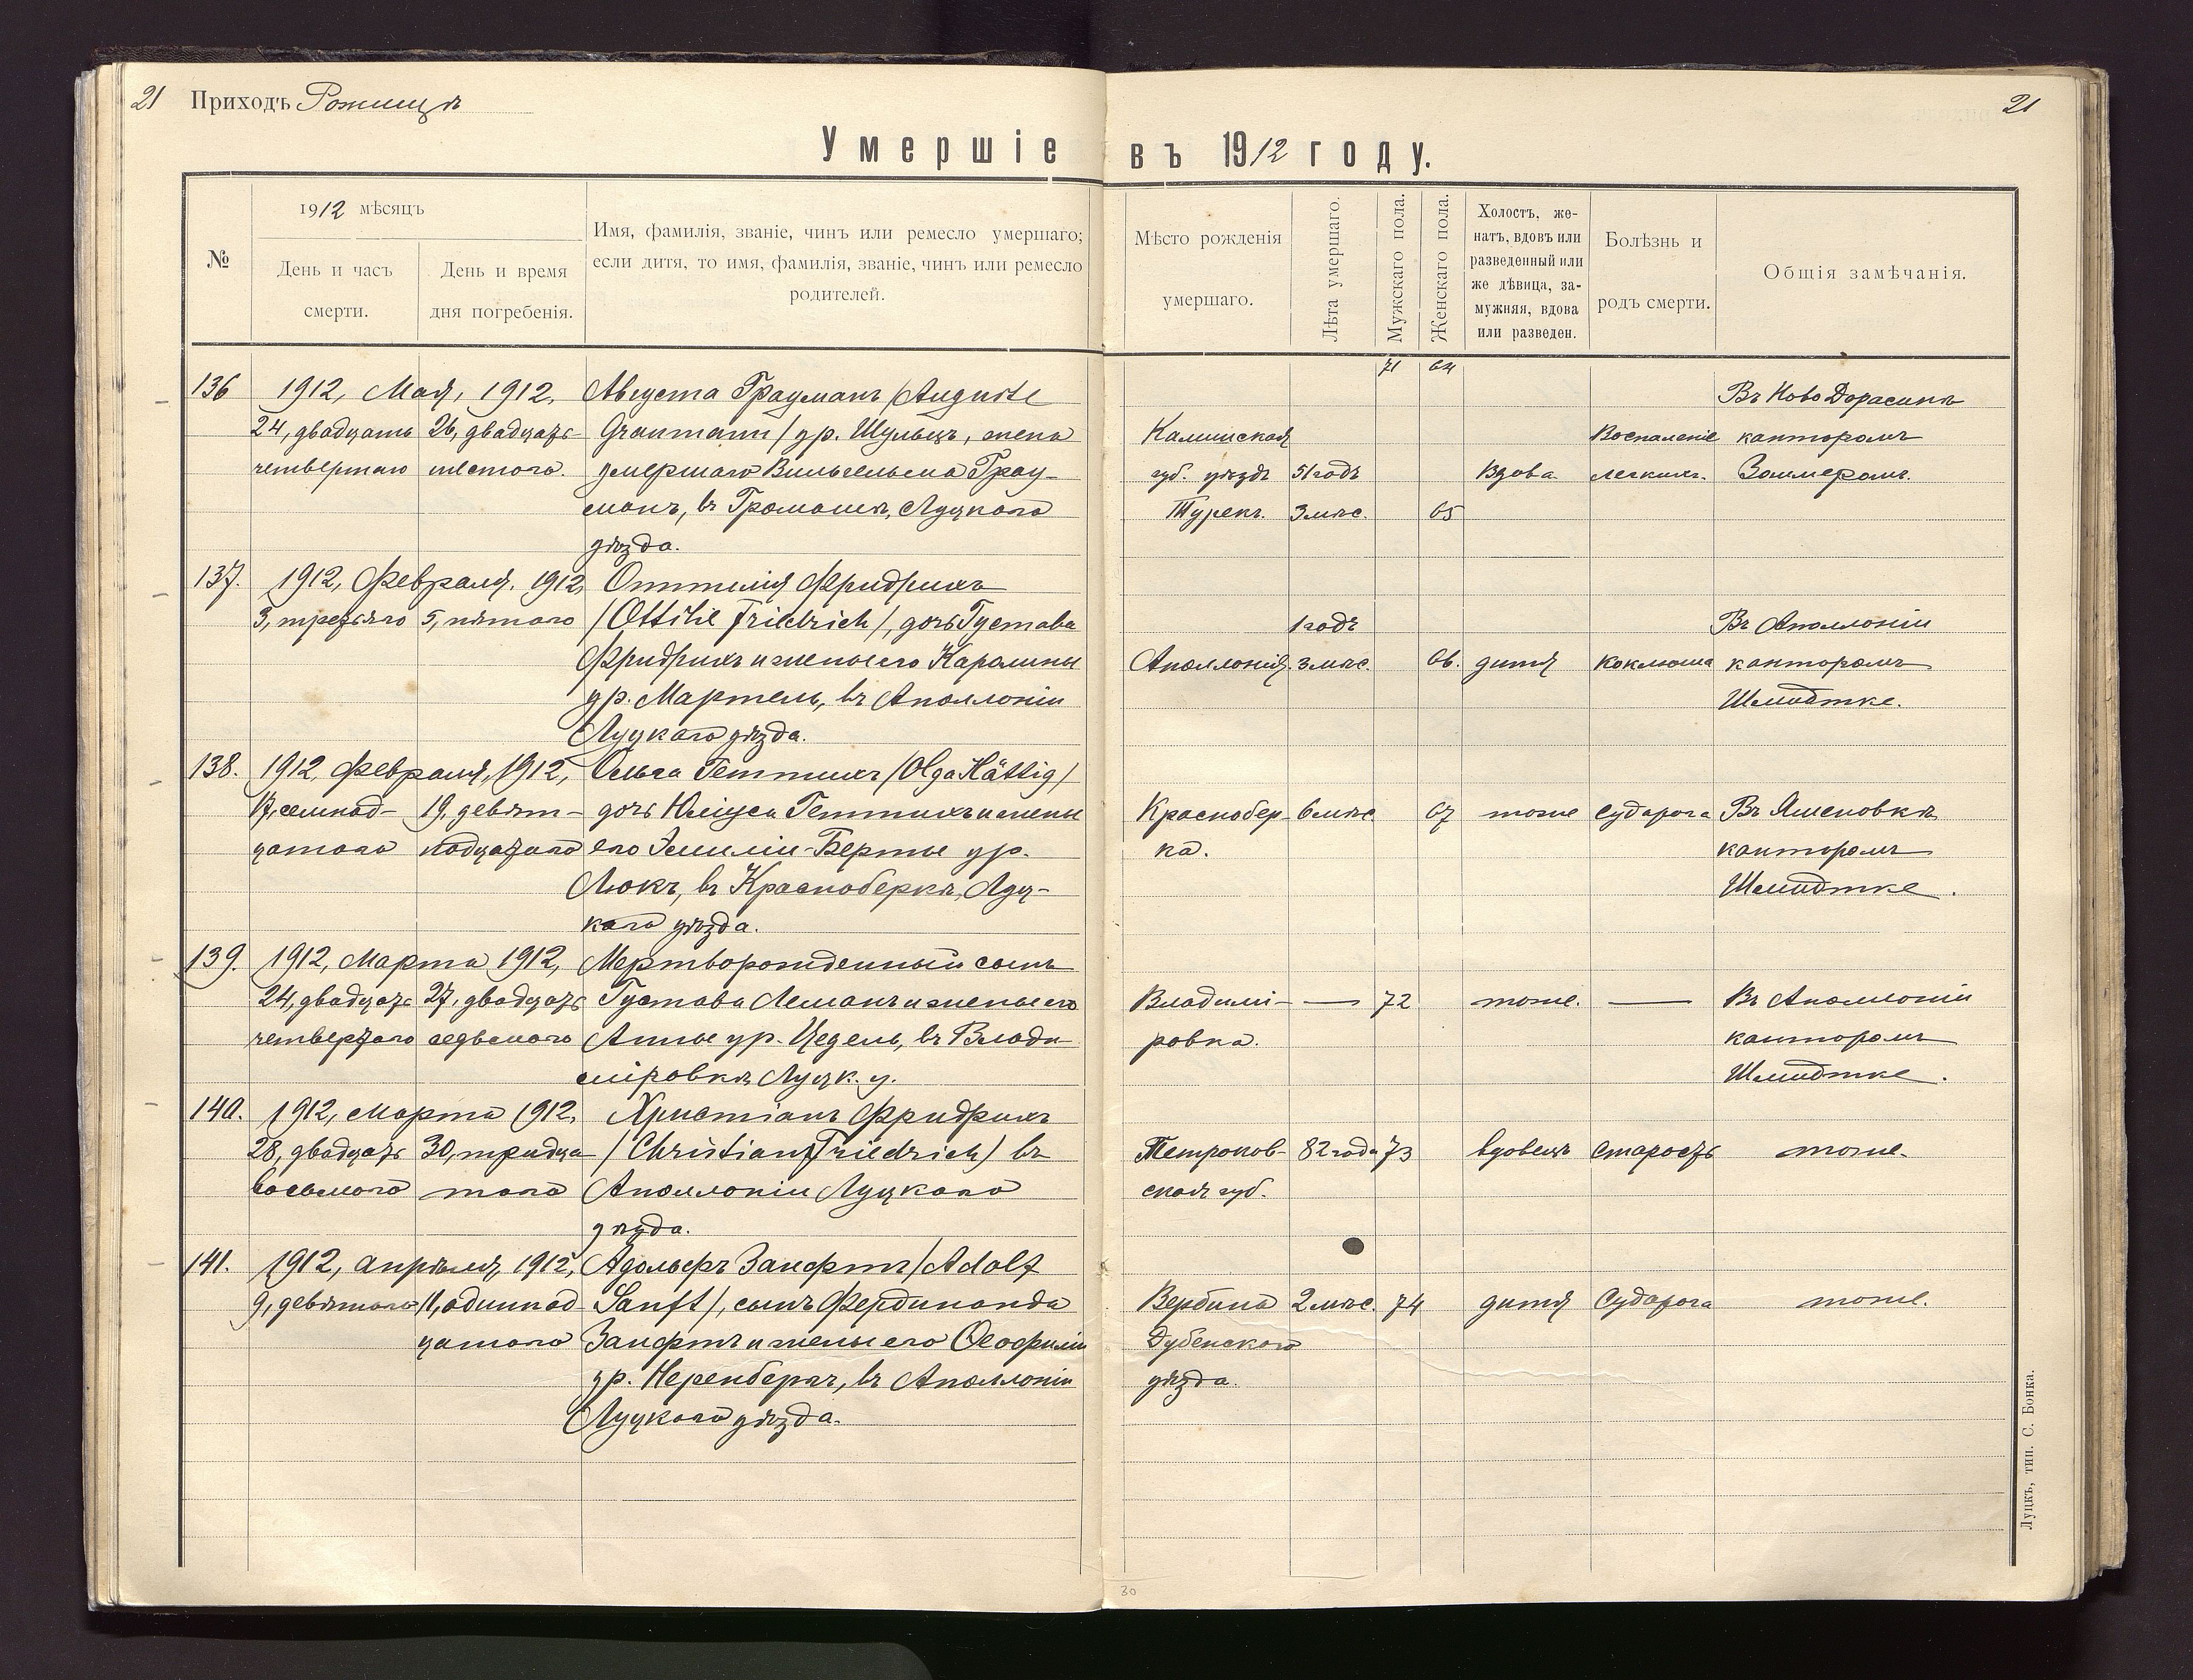 21 Приходъ Рожищѣ
21
Умершіе въ 1912 году.
№
1912 мѣсяцъ
День и часъ
смерти.
День и время
дня погребенія.
Имя, фамилія, званіе, чинъ или ремесло умершаго;
если дитя, то имя, фамилія, званіе, чинъ или ремесло
родителей.
Мѣсто рожденія
умершаго.
Лѣта умершаго.
Мужскаго пола.
Женскаго пола.
Холостъ, же-
натъ, вдовъ или
разведенный или
же дѣвица, за-
мужняя, вдова
или разведен.
Болѣзнь и
родъ смерти.
Общія замѣчанія.
71 64
136 1912, Мая, 1912, Августа Грауманъ /Auguste Въ Ново Дорасинѣ
24, двадцать 26, двадцать Graumann/ ур. Шульцъ, жена Калишская Воспаленіе канторомъ
четвертаго шестого. умершаго Вильгельма Грау- губ. уѣздъ 51 годъ Вдова легкихъ.
манъ, въ Громошѣ, Луцкаго Турекъ. 3 мѣс. 65
уѣзда.
137. 1912, Февраля, 1912, Оттилія Фридрихъ
3, третьяго 5, пятаго /Ottilie Friedrich/, дочь Густава 1 годъ Въ Аполлоніи
Фридрихъ и жены его Каролины Аполлонія. 3 мѣс. 66. дитя коклюша канторомъ
ур. Мартель, въ Аполлоніи Шмидтке.
Луцкаго уѣзда.
138. 1912, Февраля, 1912, Ольга Геттихъ /Olga Hättig/
17, семнад- 19, девят- дочь Юліуса Геттихъ и жены Краснобер- 6 мѣс 67 тоже судорога Въ Ясеновкѣ
цатаго надцатаго его Эмиліи-Берты ур. ка. канторомъ
Люкъ, въ Красноберкѣ, Луц- Шмидтке.
каго уѣзда.
139. 1912, Марта 1912, Мертворожденный сынъ
24, двадцать 27, двадцать Густава Леманъ и жены его Владимі- — 72 тоже. — Въ Аполлоніи
четвертаго седьмого Анны ур. Цедель, въ Влади ровка. канторомъ
міровкѣ Луцк. у. Шмидтке.
140. 1912, Марта 1912, Христіанъ Фридрихъ
28, двадцать 30, тридца /Christian Friedrich/ въ Петроков- 82 года 73 вдовецъ старость тоже.
восьмого таго Аполлоніи Луцкаго ская губ.
уѣзда.
141. 1912, Апрѣля, 1912, Адольфъ Занфтъ /Adolf
9, девятаго 11, одиннад Sanft/, сынъ Фердинанда Вербина 2 мѣс. 74 дитя Судорога тоже.
цатаго Занфтъ и жены его Ѳеофиліи Дубенскаго
ур. Неренбергъ, въ Аполлоніи уѣзда.
Луцкаго уѣзда.
Луцкъ, тип. С. Бонка.
30